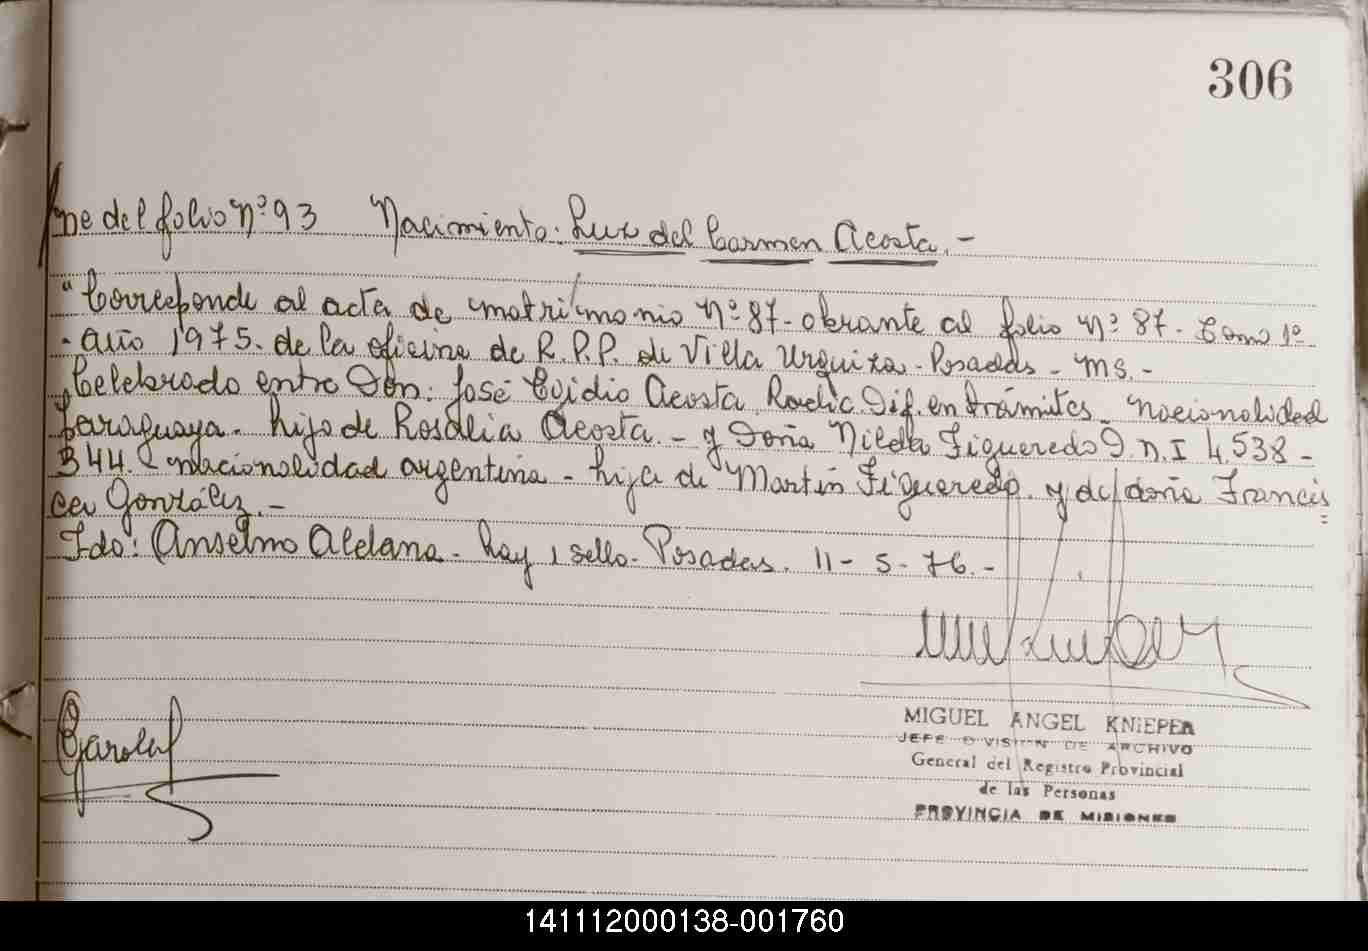 306
De del folio Nº 93 Nacimiento: Luz del Carmen Acosta.-
"Corresponde al acta de matrimonio Nº 87- obrante al folio Nº 87- Tomo 1º-
- Año 1975- de la oficina de R.P.P. de Villa Urquiza- Posadas- MS.-
Celebrado entre Don: José Acosta, Radic. Dif. en trámites- nacionalidad
paraguaya- hijo de Rosalia Acosta.- y Doña Nilda Figueredo D.N.I 4.538-
B44. nacionalidad argentina- hija de Martín Figueredo y de doña Francis
ca González.-
Fdo: Anselmo Aldana- hay 1 sello- Posadas. 11-5-76.-
MIGUEL ANGEL KNIEPER
JEFE DIVISION DE ARCHIVO
General del Registro Provincial
de las Personas
PROVINCIA DE MISIONES
141112000138-001760